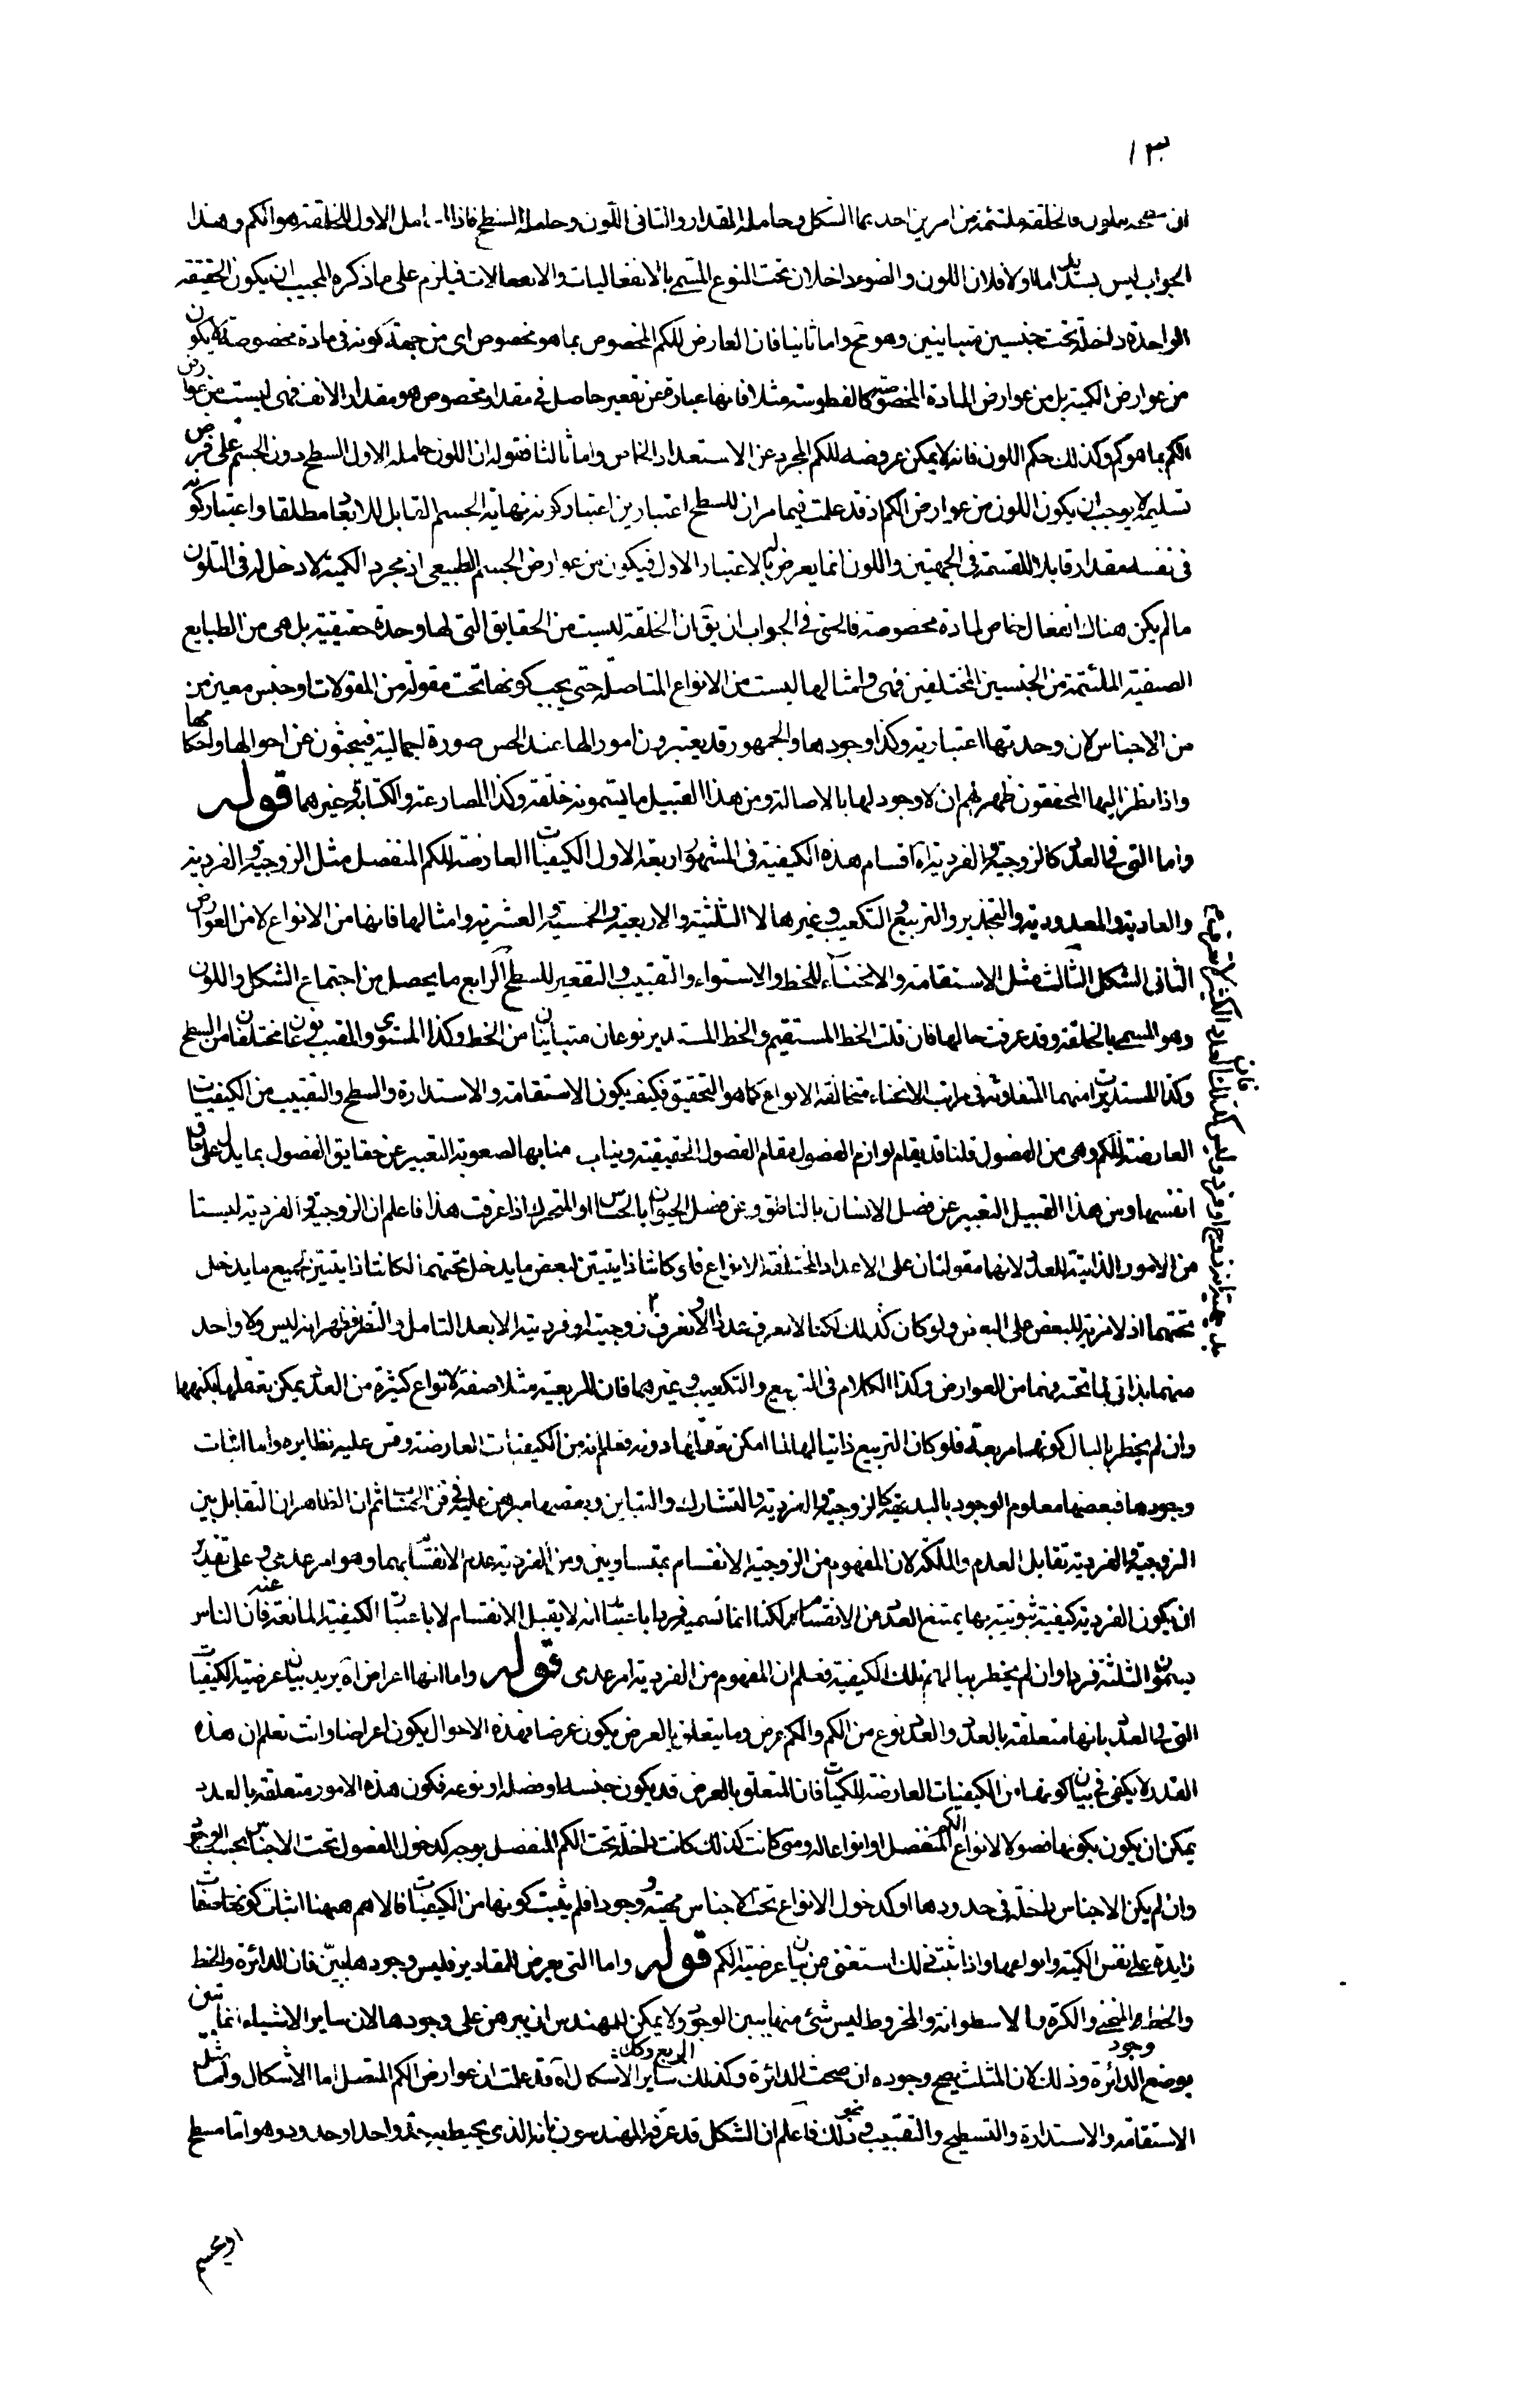 ١٣٠
ملون فالخلقة ملتئمة من امرين احدهما الشكل وحامله المقدار والثانى اللون وحامله السطح فاذا الحامل الاول للخلقة هو الكم وهذا
الجواب ليس بسديد اما اولا فلان اللون والضوء داخلان تحت النوع المسمى بالانفعاليات والانفعالات فيلزم على ما ذكره المجيب ان يكون الحقيقة
الواحدة داخلة تحت جنسين متباينين وهو مح واما ثانيا فان العارض للكم المخصوص بما هو مخصوص اى من جهة كونه فى مادة مخصوصة لا يكون
من عوارض الكمية بل من عوارض المادة المخصوصة كالفطوسة مثلا فانها عبارة عن تقعير حاصل فى مقدار مخصوص هو مقدار الانف فهى ليست من عوارض
الكم بما هو كم وكذلك حكم اللون فانه لا يمكن عروضه للكم المجرد عن الاستعداد الخاص واما ثالثا فقوله ان اللون حامله الاول السطح دون الجسم على فرض
تسليمه لا يوجب ان يكون اللون من عوارض الكم اذ قد علمت فيما مر ان للسطح اعتبارين اعتبار كونه نهاية الجسم القابل للابعاد مطلقا واعتبار كونه
فى نفسه مقدار قابلا للقسمة فى الجهتين واللون انما يعرض له بالاعتبار الاول فيكون من عوارض الجسم الطبيعى اذ مجرد الكمية لا دخل له فى التلون
ما لم يكن هناك انفعال خاص لمادة مخصوصة فالحق فى الجواب ان يق ان الخلقة ليست من الحقايق التى لها وحدة حقيقية بل هى من الطبايع
الصنفية الملتئمة من الجنسين المختلفين فهى وامثالها ليست من الانواع المتاصلة حتى يجب كونها تحت مقولة من المقولات او جنس معين من
من الاجناس لان وحدتها اعتبارية وكذا وجودها والجمهور قد يعتبرون امورا لها عند الحس صورة اجمالية فيبحثون عن احوالها واحكامها
واذا نظر اليها المحققون ظهر لهم ان لا وجود لها بالاصالة ومن هذا القبيل ما يسمونه خلقة وكذا المصارعة والكتابة وغيرهما قوله
واما التى فى العدد كالزوجية والفردية اه اقسام هذه الكيفية فى المشهور اربعة الاول الكيفيات العارضة للكم المنفصل مثل الزوجية والفردية
والعادية والمعدودية والتجذير والتربيع والتكعيب وغيرها لا الثلثية والاربعية والخمسية والعشرية وامثالها فانها من الانواع لا من العوارض
الثانى الشكل الثالث مثل الاستقامة والانحناء للخط والاستواء والتقبيب والتقعير للسطح الرابع ما يحصل من اجتماع الشكل واللون
وهو المسمى بالخلقة وقد عرفت حالها فان قلت الخط المستقيم والخط المستدير نوعان متباينان من الخط وكذا المستوى والمقبب نوعان مختلفان من السطح
وكذا المستديرات منهما المتفاوتة فى مراتب الانحناء متخالفة الانواع كما هو التحقيق فكيف يكون الاستقامة والاستدارة والسطح والتقبيب من الكيفيات
العارضة للكم وهى من الفصول قلنا قد يقام لوازم الفصول مقام الفصول الحقيقية وينابها منابها لصعوبة التعبير عن حقايق الفصول بما يدل على
انفسها ومن هذا القبيل التعبير عن فصل الانسان بالناطق وعن فصل الحيوان بالحساس او المتحرك اذا عرفت هذا فاعلم ان الزوجية والفردية ليستا
من الامور الذاتية للعدد لانهما مقولتان على الاعداد المختلفة الانواع فلو كانتا ذاتيتين لبعض ما يدخل تحتهما لكانتا ذاتيتين لجميع ما يدخل
تحتهما اذ لا مزية للبعض على البعض ولو كان كذلك لكنا لا نعرف عددا الا ونعرف زوجيته او فرديته الا بعد التامل والنظر فظهر انه ليس ولا واحد
منهما بذاتى لما تحته فهما من العوارض وكذا الكلام فى التربيع والتكعيب وغيرهما فان المربعية مثلا صفة لانواع كثيرة من العدد يمكن تعقلها بكنهها
وان لم يخطر بالبال كونها مربعة فلو كان التربيع ذاتيا لها لما امكن تعقلها دونه فعلم انه من الكيفيات العارضة وقس عليه نظايره واما اثبات
وجودها فبعضها معلوم الوجود بالبديهة كالزوجية والفردية والتشارك والتباين وبعضها مبرهن عليه فى فن الحساب ثم ان الظاهر ان التقابل بين
الزوجية والفردية تقابل العدم والملكة لان المفهوم من الزوجية الانقسام بمتساويين ومن الفردية عدم الانقسام بهما وهو امر عدمى وعلى تقدير
ان يكون الفردية كيفية ثبوتية بها يمتنع العدد من الانقسام لكنا انما نسميه فردا باعتبار انه لا يقبل الانقسام لا باعتبار الكيفية المانعة عنه فان الناس
يسمون الثلثة فردا وان لم يخطر ببالهم تلك الكيفية فعلم ان المفهوم من الفردية امر عدمى قوله واما انها اعراض اه يريد بيان عرضية الكيفيات
التى فى العدد بانها متعلقة بالعدد والعدد نوع من الكم والكم عرض وما يتعلق بالعرض يكون عرضا فهذه الاحوال يكون اعراضا وانت تعلم ان هذه
القدر لا يكفى فى بيان كونها من الكيفيات العارضة للكميات فان المتعلق بالعرض قد يكون جنسه او فصله او نوعه فكون هذه الامور متعلقة بالعدد
يمكن ان يكون بكونها فصولا لانواع الكم المنفصل او انواعا له ومتى كانت كذلك كانت داخلة تحت الكم المنفصل بوجه كدخول الفصول تحت الاجناس بحسب الوجود
وان لم يكن الاجناس داخلة فى حدودها او كدخول الانواع تحت الاجناس مهية ووجودا فلم يثبت كونها من الكيفيات فالاهم ههنا اثبات كونها صفات
زايدة على نفس الكمية وانواعها واذا ثبت ذلك استغنى عن بيان عرضية الكم قوله واما التى يعرض للمقادير فليس وجودها ببين فان الدائرة والخط
والخط المنحنى والكرة والاسطوانة والمخروط ليس شئ منها بين الوجود ولا يمكن للمهندس ان يبرهن على وجودها لان ساير الاشياء انما تبين
وجود
بوضع الدائرة وذلك لان المثلث يصح وجوده ان صحت الدائرة وكذلك المربع وكذلك ساير الاشكال اه قد علمت ان عوارض الكم المتصل اما الاشكال واما مثل
الاستقامة والاستدارة والتسطيح والتقبيب ونحو ذلك فاعلم ان الشكل قد عرفه المهندسون بانه الذى يحيط به حد واحد او حدود وهو اما مسطح
او مجسم